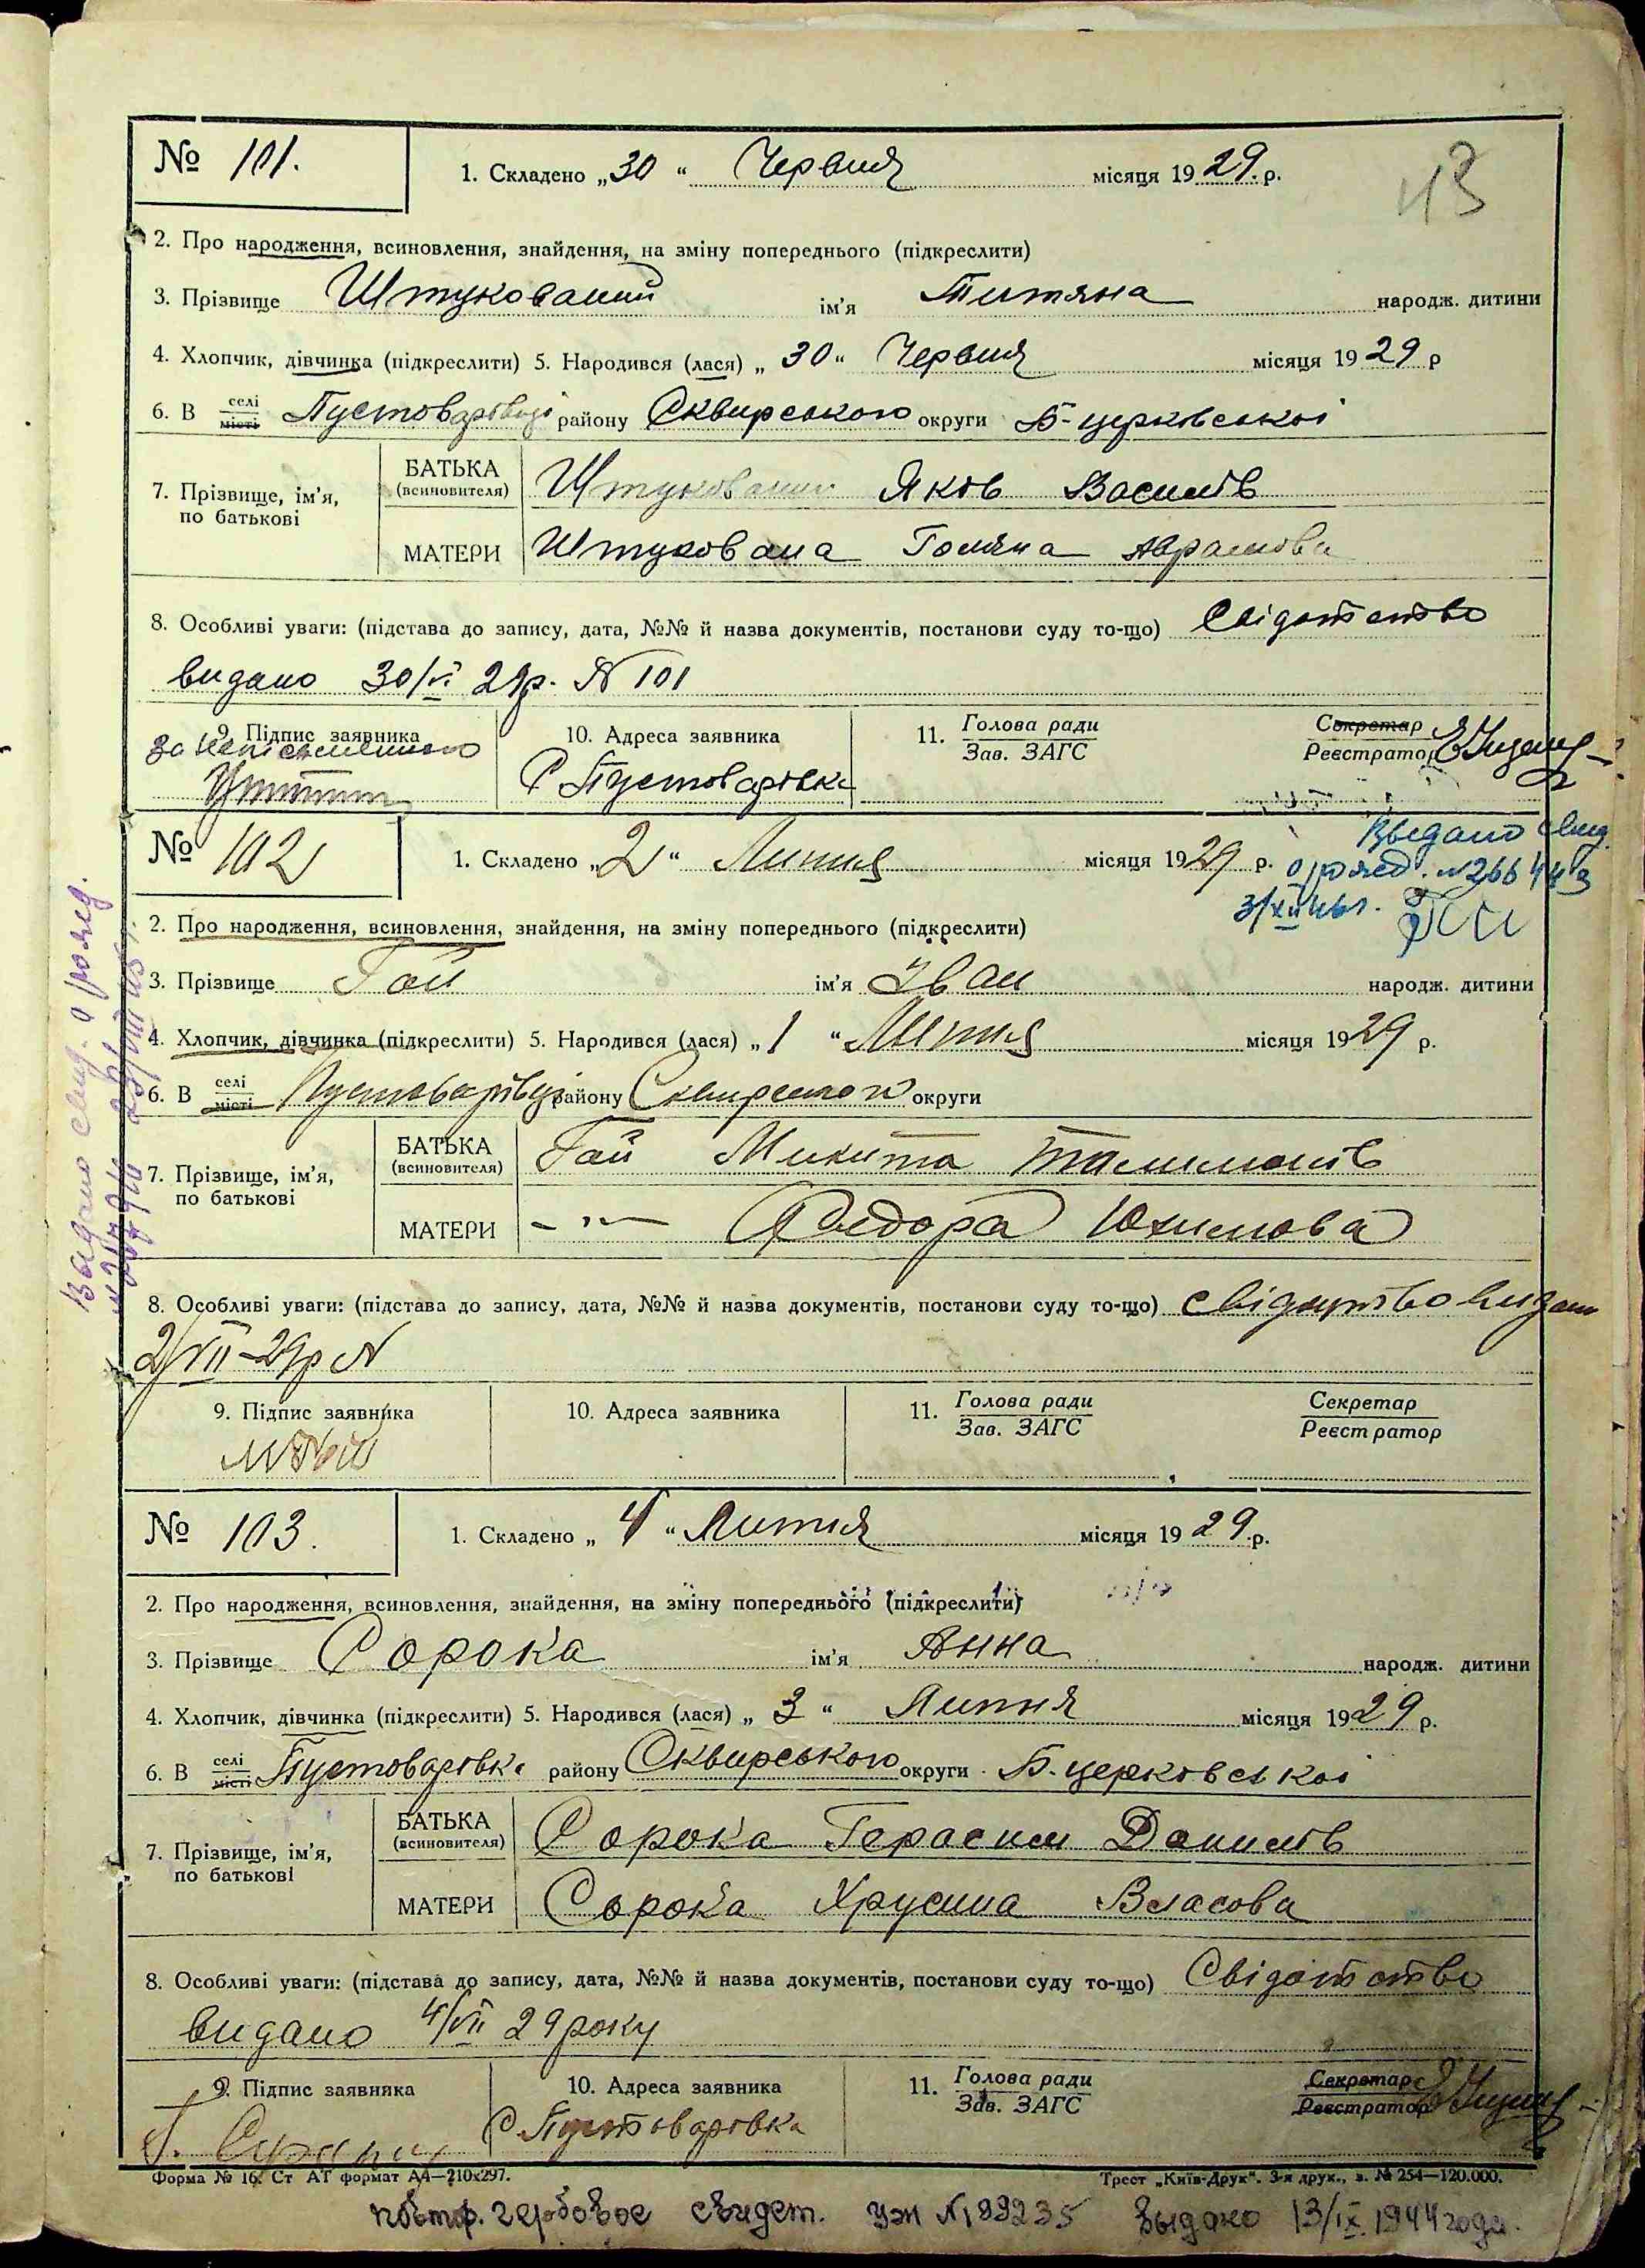 43
№ 101. 1. Складено „30“ Червня місяця 1929. р.
2. Про народження, всиновлення, знайдення, на зміну попереднього (підкреслити)
3. Прізвище Штукований ім'я Титяна народж. дитини
4. Хлопчик, дівчинка (підкреслити) 5. Народився (лася) „30“ Червня місяця 1929 р
6. В селі місті Пустоварівці району Сквирського округи Б-церківської
7. Прізвище, ім'я, по батькові БАТЬКА (всиновителя) Штукований Яков Василів
МАТЕРИ Штукована Голяна Аврамова
8. Особливі уваги: (підстава до запису, дата, №№ й назва документів, постанови суду то-що) Свідотство
видано 30/VI 29р. N 101
9. Підпис заявника 10. Адреса заявника 11. Голова ради Зав. ЗАГС Секретар Реєстратор
за неписьменного
С Пустоварівка
Выдано свид.
о рожд. №266443
3/XII 46г.
№ 102 1. Складено „2“ Липня місяця 1929 р.
2. Про народження, всиновлення, знайдення, на зміну попереднього (підкреслити)
3. Прізвище Гай ім'я Іван народж. дитини
4. Хлопчик, дівчинка (підкреслити) 5. Народився (лася) „1“ Липня місяця 1929 р.
6. В селі місті Пустоварівці району Сквирського округи
7. Прізвище, ім'я, по батькові БАТЬКА (всиновителя) Гай Микита Талимонів
МАТЕРИ -"- Федора Юхимова
8. Особливі уваги: (підстава до запису, дата, №№ й назва документів, постанови суду то-що) свідоцтво видано
2/VII-29р N
9. Підпис заявника 10. Адреса заявника 11. Голова ради Зав. ЗАГС Секретар Реєстратор
М Гай
Выдано свид. о рожд.
№ 103. 1. Складено „4“ Липня місяця 1929 р.
2. Про народження, всиновлення, знайдення, на зміну попереднього (підкреслити)
3. Прізвище Сорока ім'я Анна народж. дитини
4. Хлопчик, дівчинка (підкреслити) 5. Народився (лася) „3“ Липня місяця 1929 р.
6. В селі місті Пустоварівка району Сквирського округи Б. церковської
7. Прізвище, ім'я, по батькові БАТЬКА (всиновителя) Сорока Герасим Данилів
МАТЕРИ Сорока Хрусина Власова
8. Особливі уваги: (підстава до запису, дата, №№ й назва документів, постанови суду то-що) Свідотство
видано 4/VII 29 року
9. Підпис заявника 10. Адреса заявника 11. Голова ради Зав. ЗАГС Секретар Реєстратор
С Пустоварівка
Форма № 16. Ст АТ формат А4—210х297. Трест „Київ-Друк“. 3-я друк., з. № 254—120.000.
повтор. гербовое свидет. УЖ №189235 выдано 13/IX 1944 года.